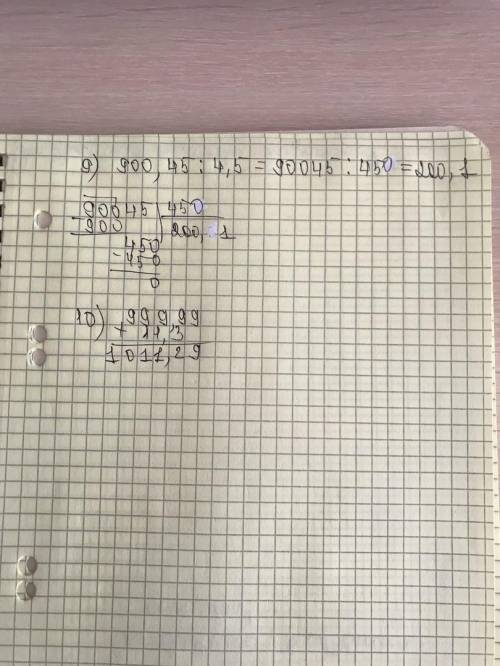 9) 900,45 : 4,5 = 90045 : 450 = 200,1
90045 | 450
- 900 | 200,1
450
- 450
0
10) 999,99
+ 11,3
1011,29